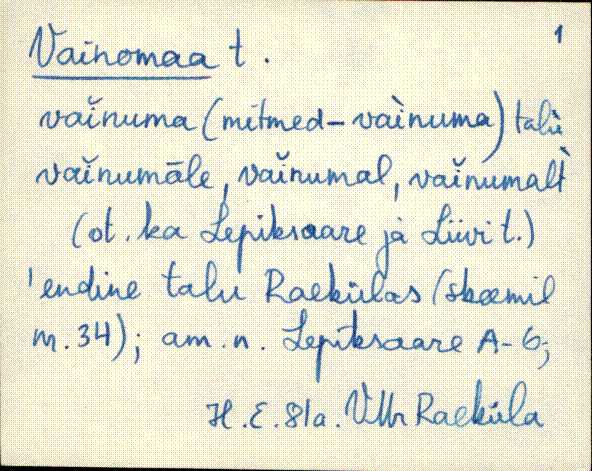 1
Vainomaa t.
vaǐnuma (mitmed - vaìnuma) talù
vaǐnumāle, vaǐnumal, vaǐnumalt̀
(ot. ka Lepiksaare ja Liivi t.)
'endine talu Raekülas (skeemil
m. 34); am. n. Lepiksaare A-6;
H. E. 81a. VMr Raeküla